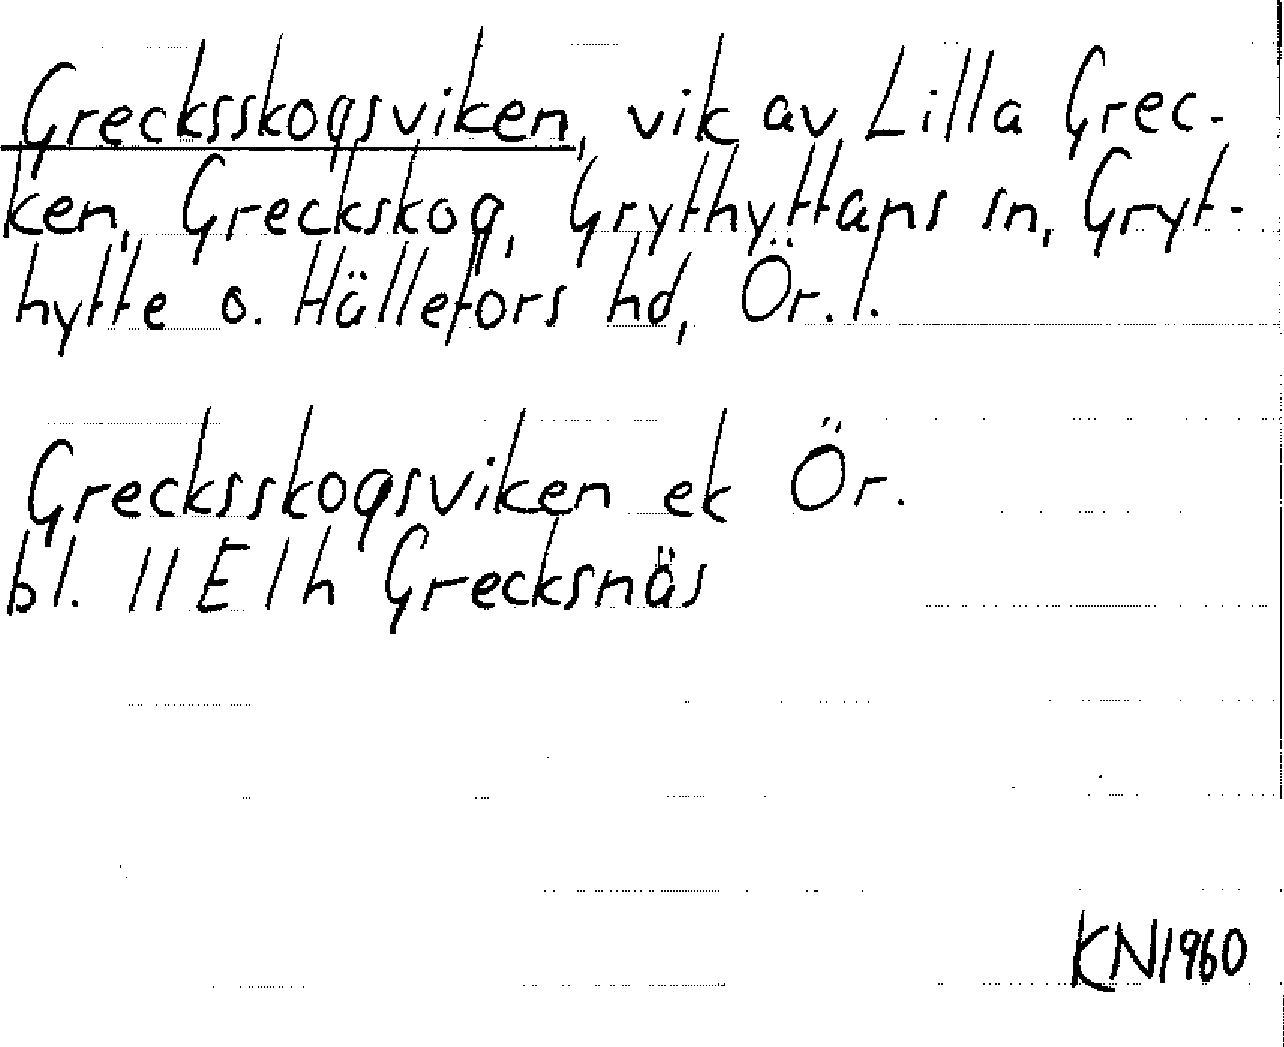 Grecksskogsviken, vik av Lilla Grec-
ken, Greckskog, Grythyttans sn, Gryt-
hytte o. Hällefors hd, Ör. l.
Grecksskogsviken ek Ör.
bl. 11 E 1 h Grecksnäs
KN 1960